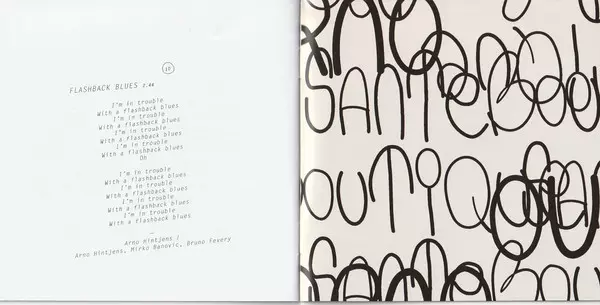 10
FLASHBACK BLUES 2.44
I'm in trouble
With a flashback blues
I'm in trouble
With a flashback blues
I'm in trouble
With a flashback blues
I'm in trouble
With a flashback blues
Oh
I'm in trouble
With a flashback blues
I'm in trouble
With a flashback blues
I'm in trouble
With a flashback blues
I'm in trouble
With a flashback blues
–
Arno Hintjens /
Arno Hintjens, Mirko Banovic, Bruno Fevery
SANTEBOU
OUTIQ